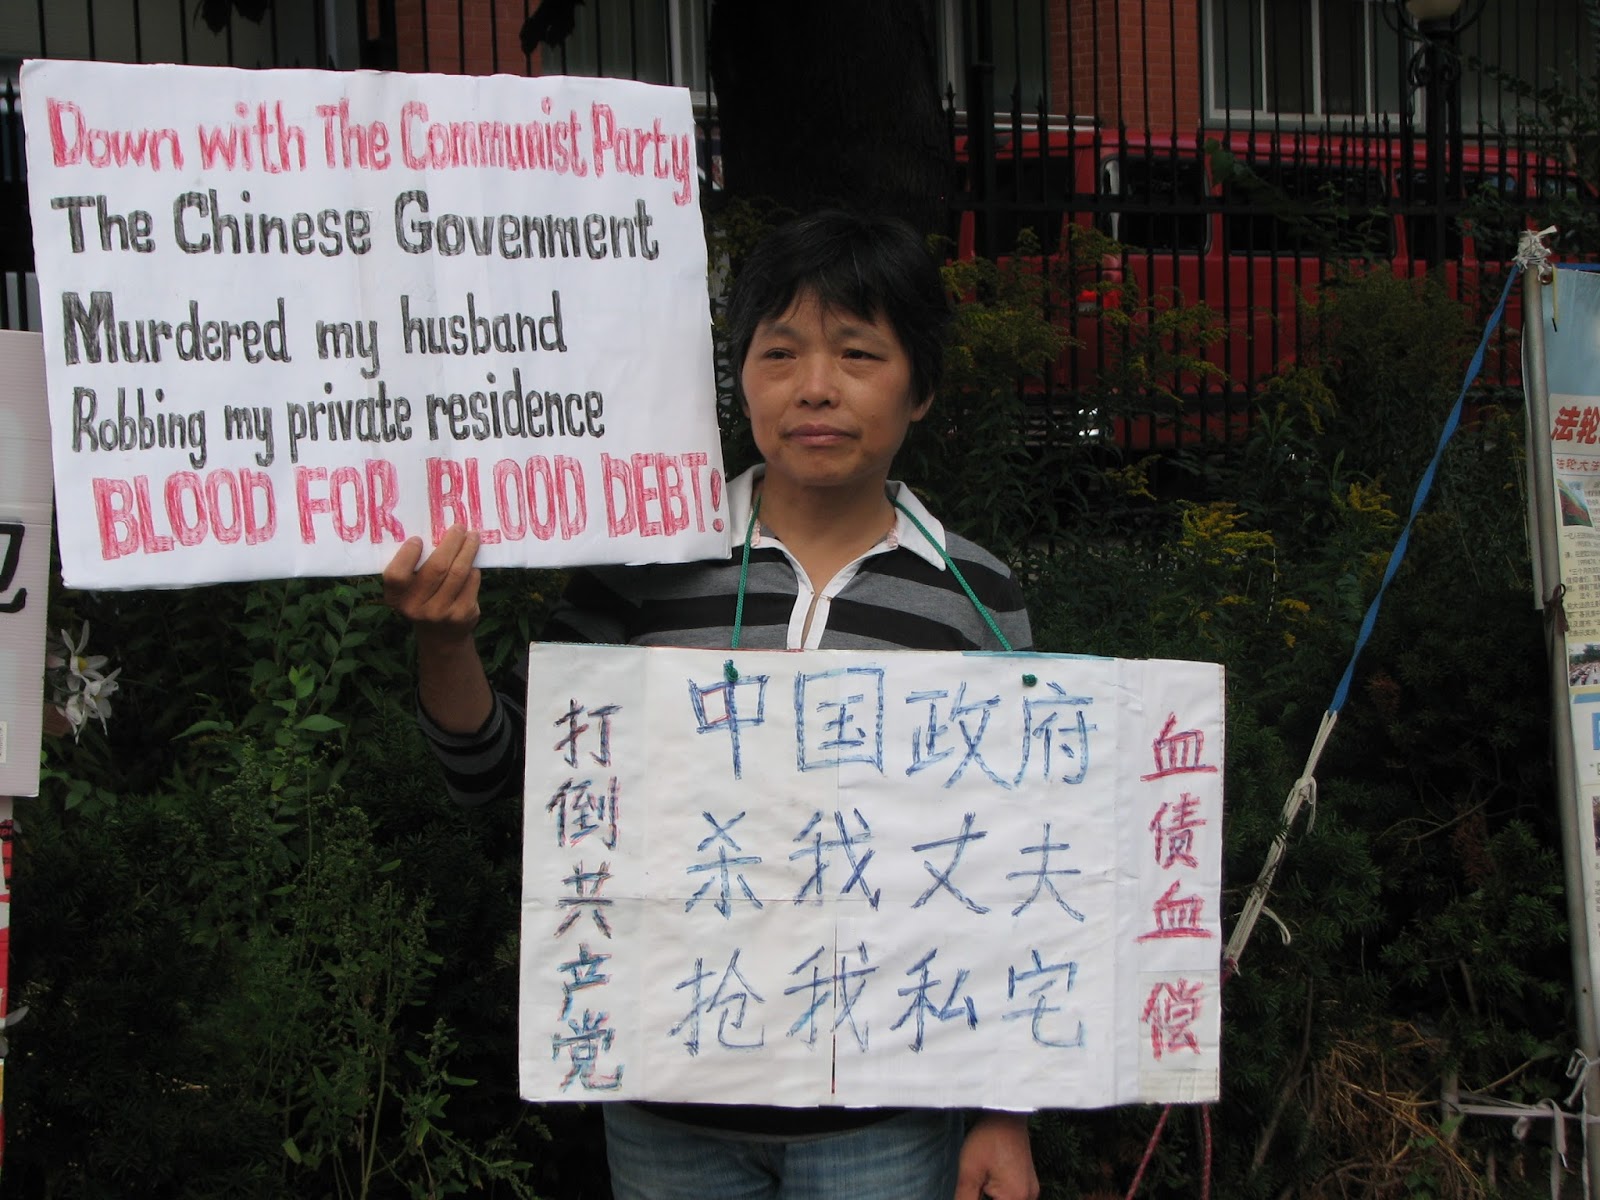 Down with The Communist Party
The Chinese Govenment
Murdered my husband
Robbing my private residence
BLOOD FOR BLOOD DEBT!
打倒共产党
中国政府
杀我丈夫
抢我私宅
血债血偿
法轮
法轮大法